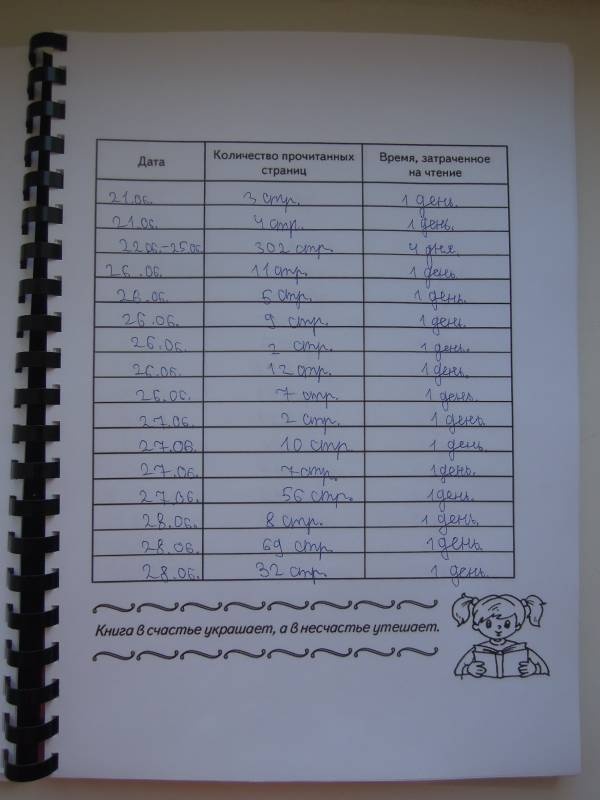 Дата Количество прочитанных страниц Время, затраченное на чтение
21.06. 3 стр. 1 день.
21.06. 4 стр. 1 день.
22.06.-25.06. 302 стр. 4 дня.
26.06. 11 стр. 1 день
26.06. 6 стр. 1 день.
26.06. 9 стр. 1 день.
26.06. 2 стр. 1 день.
26.06. 12 стр. 1 день.
26.06. 7 стр. 1 день.
27.06. 2 стр. 1 день.
27.06. 10 стр. 1 день.
27.06. 7 стр. 1 день.
27.06. 56 стр. 1 день.
28.06. 8 стр. 1 день.
28.06. 69 стр. 1 день.
28.06. 32 стр. 1 день.
Книга в счастье украшает, а в несчастье утешает.